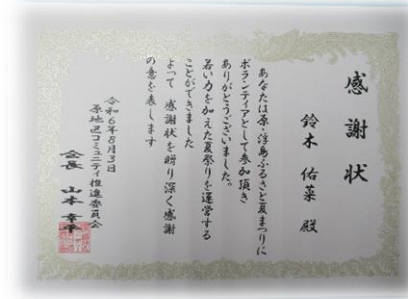 感謝状
鈴木 佑菜 殿
あなたは原・浮島ふるさと夏まつりに
ボランティアとして参加頂き
ありがとうございました。
若い力を加えた夏祭りを運営する
ことができました
よって 感謝状を贈り深く感謝
の意を表します
令和6年8月3日
原地区コミュニティ推進委員会
会長 山本 幸